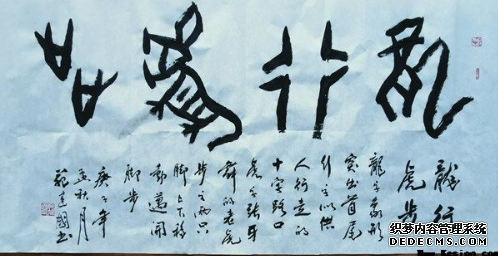 龍行虎步
龍行
虎步
龍之象形
突出首尾
行之以供
人行走的
十字路口
虎之張牙
老虎
步之两只
脚上下移
動邁開
脚步
庚子年
孟秋月
书
织梦内容管理系统
DEDECMS.COM